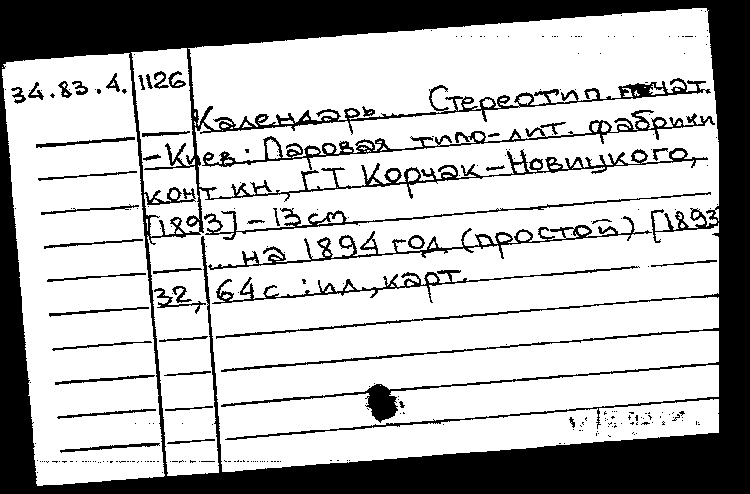 34.83.4. 1126
Календарь... Стереотип. печат.
- Киев: Паровая типо-лит. фабрики
конт. кн., Г.Т. Корчак-Новицкого,
[1893] - 13 cm
... на 1894 год (простой). [1893
32, 64 с. : ил., карт.